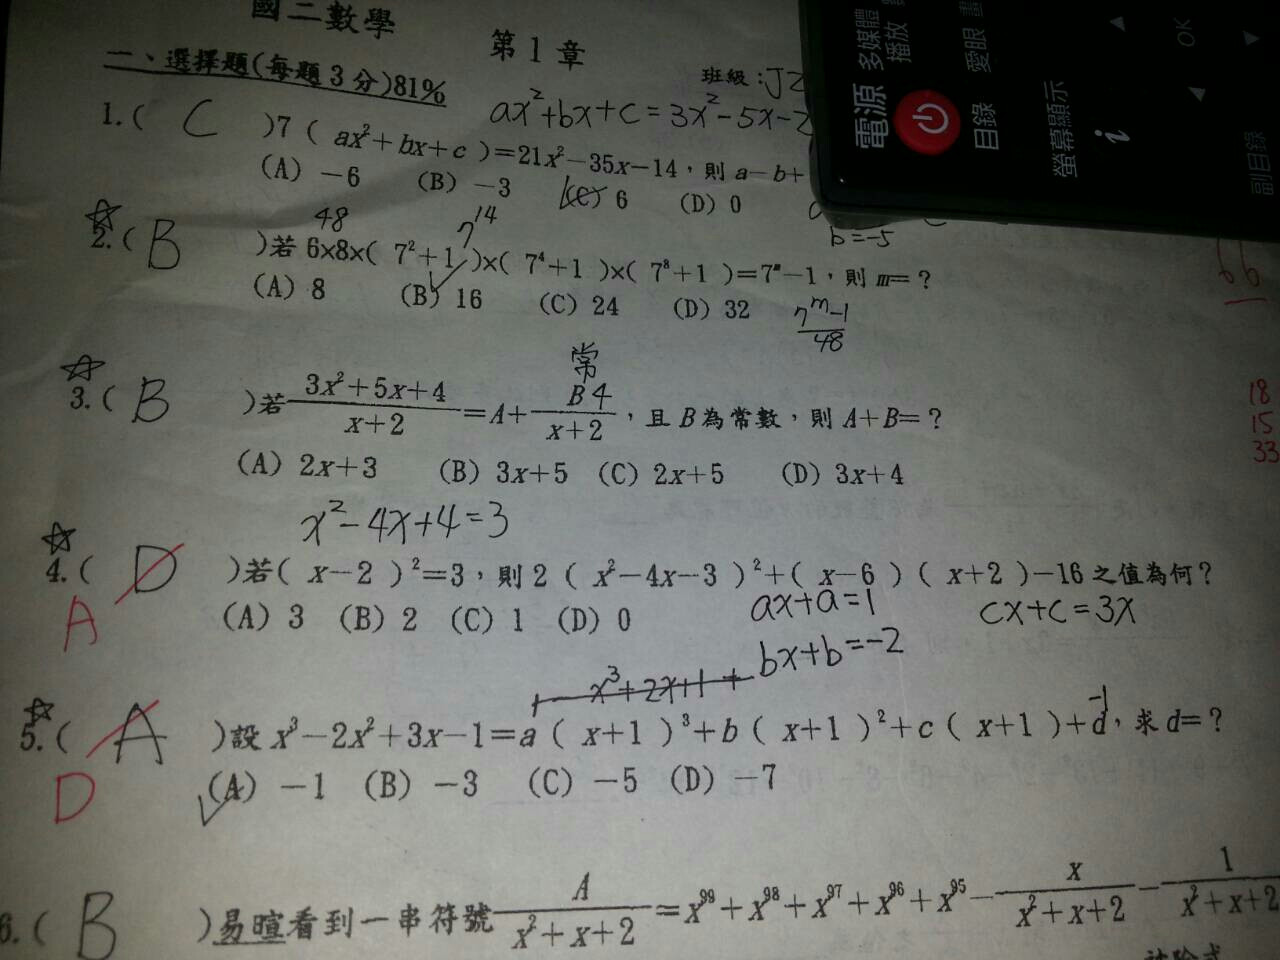 國二數學
第1章
一、選擇題(每題3分)81%
班級:J2
ax²+bx+c=3x²-5x-2
1.( C )7(ax²+bx+c)=21x²-35x-14,則a-b+
(A) -6 (B) -3 (C) 6 (D) 0
b=-5
48 7¹⁴
2.( B )若6×8×(7²+1)×(7⁴+1)×(7⁸+1)=7ᵐ-1,則m=?
(A) 8 (B) 16 (C) 24 (D) 32
7ᵐ-1/48
常
3.( B )若(3x²+5x+4)/(x+2)=A+B4/(x+2),且B為常數,則A+B=?
(A) 2x+3 (B) 3x+5 (C) 2x+5 (D) 3x+4
18
15
33
x²-4x+4=3
4.( D )若(x-2)²=3,則2(x²-4x-3)²+(x-6)(x+2)-16之值為何?
A
(A) 3 (B) 2 (C) 1 (D) 0
ax+a=1
cx+c=3x
bx+b=-2
x³+2x+1+
-1
5.( A )設x³-2x²+3x-1=a(x+1)³+b(x+1)²+c(x+1)+d,求d=?
D
(A) -1 (B) -3 (C) -5 (D) -7
6.( B )易暄看到一串符號A/(x²+x+2)=x⁹⁹+x⁹⁸+x⁹⁷+x⁹⁶+x⁹⁵-x/(x²+x+2)-1/(x²+x+2)
電源
多媒體
播放
目錄
愛眼
螢幕顯示
i
OK
副目錄